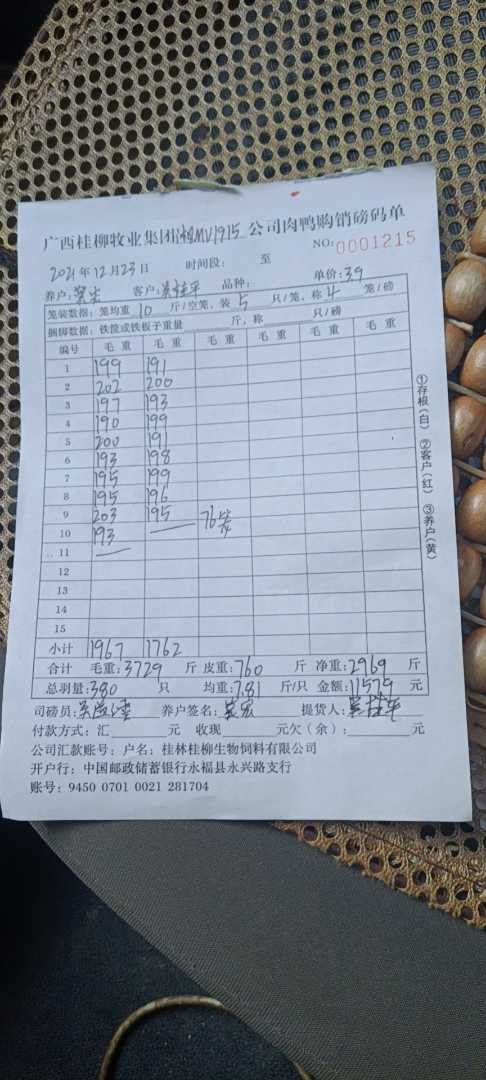 广西桂柳牧业集团湘MV1915公司肉鸭购销磅码单
NO:0001215
2021年12月23日 时间段: 至
养户: 客户:吴桂平 品种: 单价:3.9
笼装数据:笼均重10斤/空笼,装5只/笼,称4笼/磅
捆脚数据:铁筐或铁板子重量 斤,称 只/磅
编号 毛重 毛重 毛重 毛重 毛重 毛重
1 199 191
2 202 200
3 197 193
4 190 199
5 200 191
6 193 198
7 195 199
8 195 196
9 203 195 76笼
10 193
11
12
13
14
15
小计 1967 1762
合计 毛重:3729斤 皮重:760斤 净重:2969斤
总羽量:380只 均重:7.81斤/只 金额:11579元
司磅员: 养户签名: 提货人:吴桂平
付款方式:汇 元 收现 元欠(余): 元
公司汇款账号:户名:桂林桂柳生物饲料有限公司
开户行:中国邮政储蓄银行永福县永兴路支行
账号:9450 0701 0021 281704
①存根(白) ②客户(红) ③养户(黄)